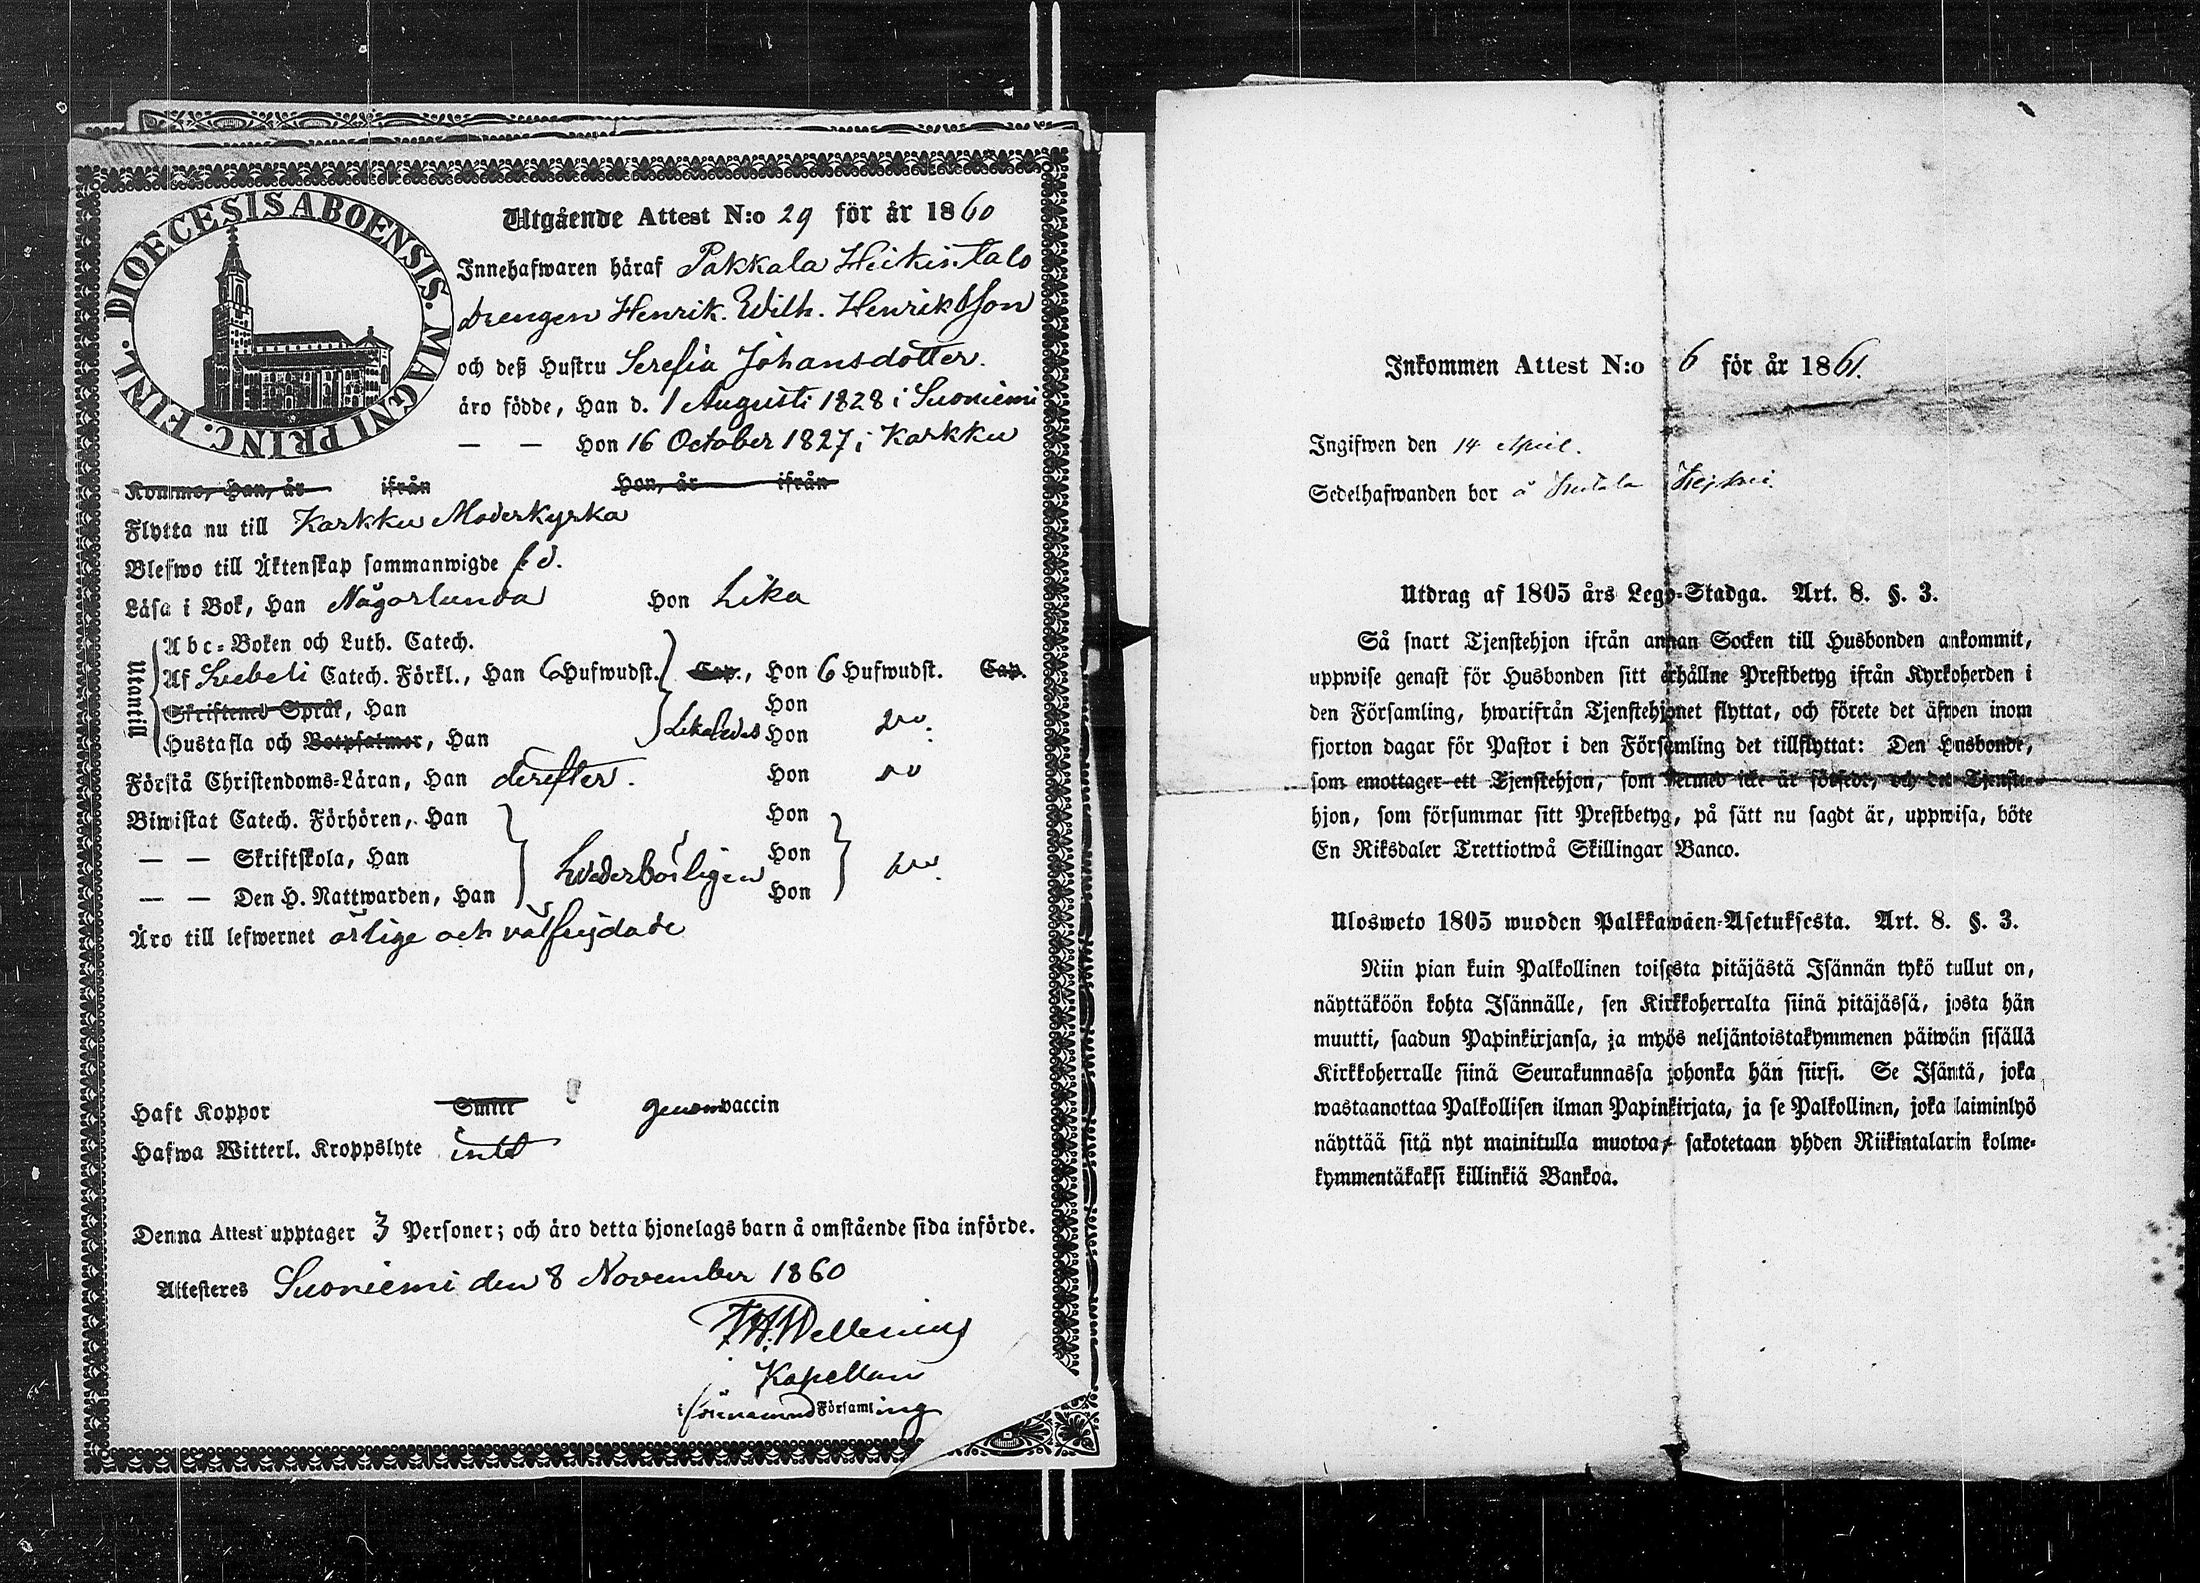 DIOECESIS ABOENSIS. MAGNI PRINC. FINL.
Utgående Attest N:o 29 för år 1860
Innehafwaren häraf Pakkala Heikintalo
drengen Henrik. Wilh. Henriksson
och deß Hustru Serefia Johansdotter.
äro födde, Han d. 1 Augusti 1828 i Suoniemi
— — Hon 16 October 1827 i Karkku
Komne, Han, år ifrån Hon, år ifrån
Flytta nu till Karkku Moderkyrka
Blefwo till Äktenskap sammanwigde
Läsa i Bok, Han Någorlunda Hon Lika
Utantill
Abc-Boken och Luth. Catech.
Af Svebeli Catech. Förkl., Han 6 Hufwudst. Cap., Hon 6 Hufwudst. Cap.
Skriftenes Språk, Han Hon
Hustafla och Botpsalmer, Han Likaledes Hon
Förstå Christendoms-Läran, Han derefter. Hon
Biwistat Catech. Förhören, Han Hon
— — Skriftskola, Han Hon
— — Den H. Nattwarden, Han Hon
Äro till lefwernet ärlige och välfrejdade
Haft Koppor Smitt genom vaccin
Hafwa Witterl. Kroppslyte intet
Denna Attest upptager 3 Personer; och äro detta hjonelags barn å omstående sida införde.
Attesteres Suoniemi den 8 November 1860
Kapellan
i förenämnd Församling
Inkommen Attest N:o 6 för år 1861.
Ingifwen den 14 April.
Sedelhafwanden bor å
Utdrag af 1805 års Lego-Stadga. Art. 8. §. 3.
Så snart Tjenstehjon ifrån annan Socken till Husbonden ankommit,
uppwise genast för Husbonden sitt erhållne Prestbetyg ifrån Kyrkoherden i
den Församling, hwarifrån Tjenstehjonet flyttat, och förete det äfwen inom
fjorton dagar för Pastor i den Församling det tillflyttat: Den Husbonde,
som emottager ett Tjenstehjon, som dermed icke är försedt, och det Tjenste-
hjon, som försummar sitt Prestbetyg, på sätt nu sagdt är, uppwisa, böte
En Riksdaler Trettiotwå Skillingar Banco.
Ulosweto 1805 wuoden Palkkawäen-Asetuksesta. Art. 8. §. 3.
Niin pian kuin Palkollinen toisesta pitäjästä Isännän tykö tullut on,
näyttäköön kohta Isännälle, sen Kirkkoherralta siinä pitäjässä, josta hän
muutti, saadun Papinkirjansa, ja myös neljäntoistakymmenen päiwän sisällä
Kirkkoherralle siinä Seurakunnassa johonka hän siirsi. Se Isäntä, joka
wastaanottaa Palkollisen ilman Papinkirjata, ja se Palkollinen, joka laiminlyö
näyttää sitä nyt mainitulla muotoa, sakotetaan yhden Riikintalarin kolme-
kymmentäkaksi killinkiä Bankoa.